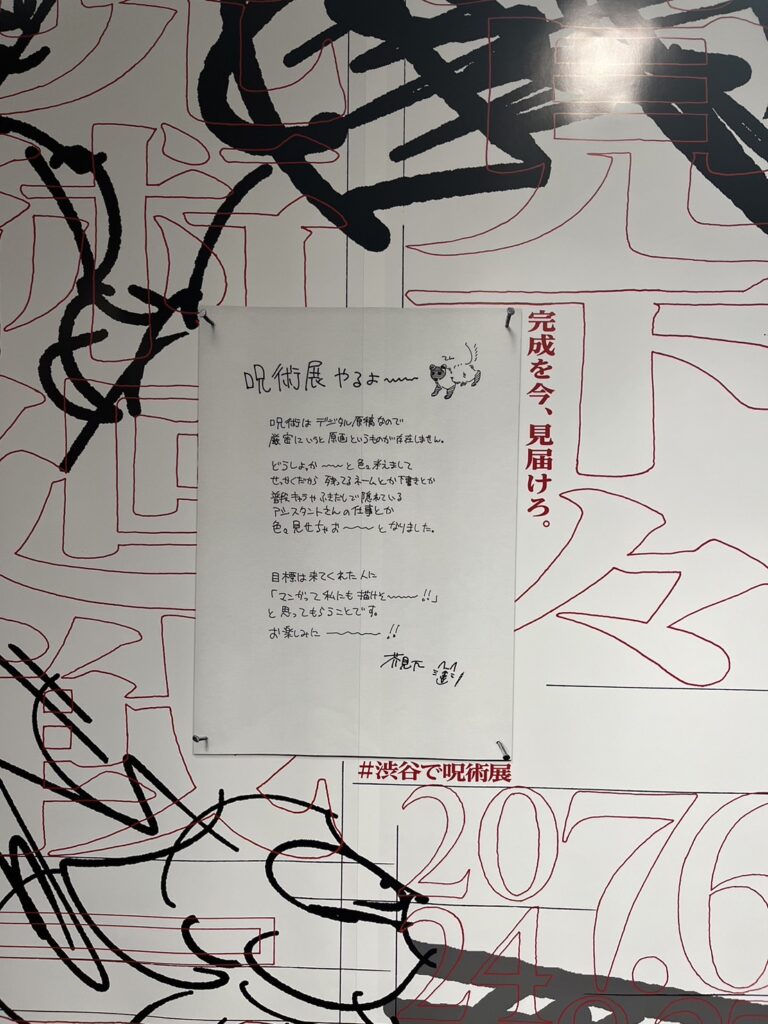 呪術廻戦
見下々
完成を今、見届けろ。
呪術展 やるよ〜〜
呪術は デジタル原稿なので
厳密にいうと 原画というものが存在しません。
どうしよっか〜〜〜と色々考えまして
せっかくだから 残ってるネームとか下書きとか
普段キャラやふきだしで隠れている
アシスタントさんの仕事とか
色々見せちゃお〜〜〜となりました。
目標は来てくれた人に
「マンガって私にも描けそ〜〜〜!!」
と思ってもらうことです。
お楽しみに〜〜〜!!
芥見下
#渋谷で呪術展
20
24
7.6